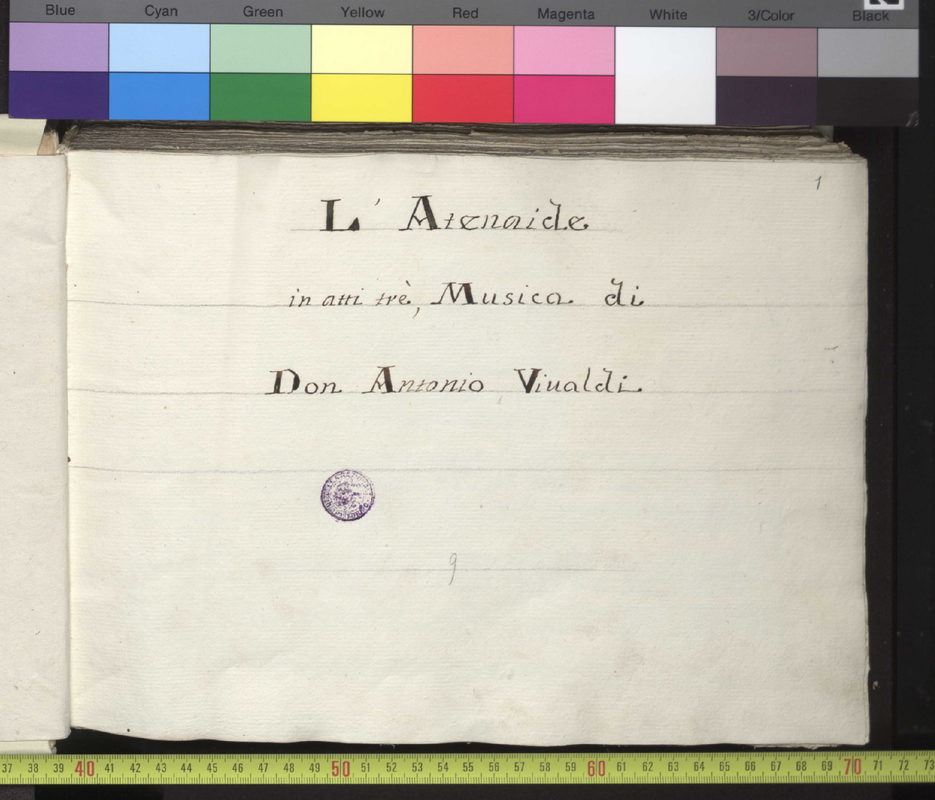 Blue Cyan Green Yellow Red Magenta White 3/Color Black
1
L' Atenaide
in atti trè, Musica di
Don Antonio Viualdi
9
37 38 39 40 41 42 43 44 45 46 47 48 49 50 51 52 53 54 55 56 57 58 59 60 61 62 63 64 65 66 67 68 69 70 71 72 73